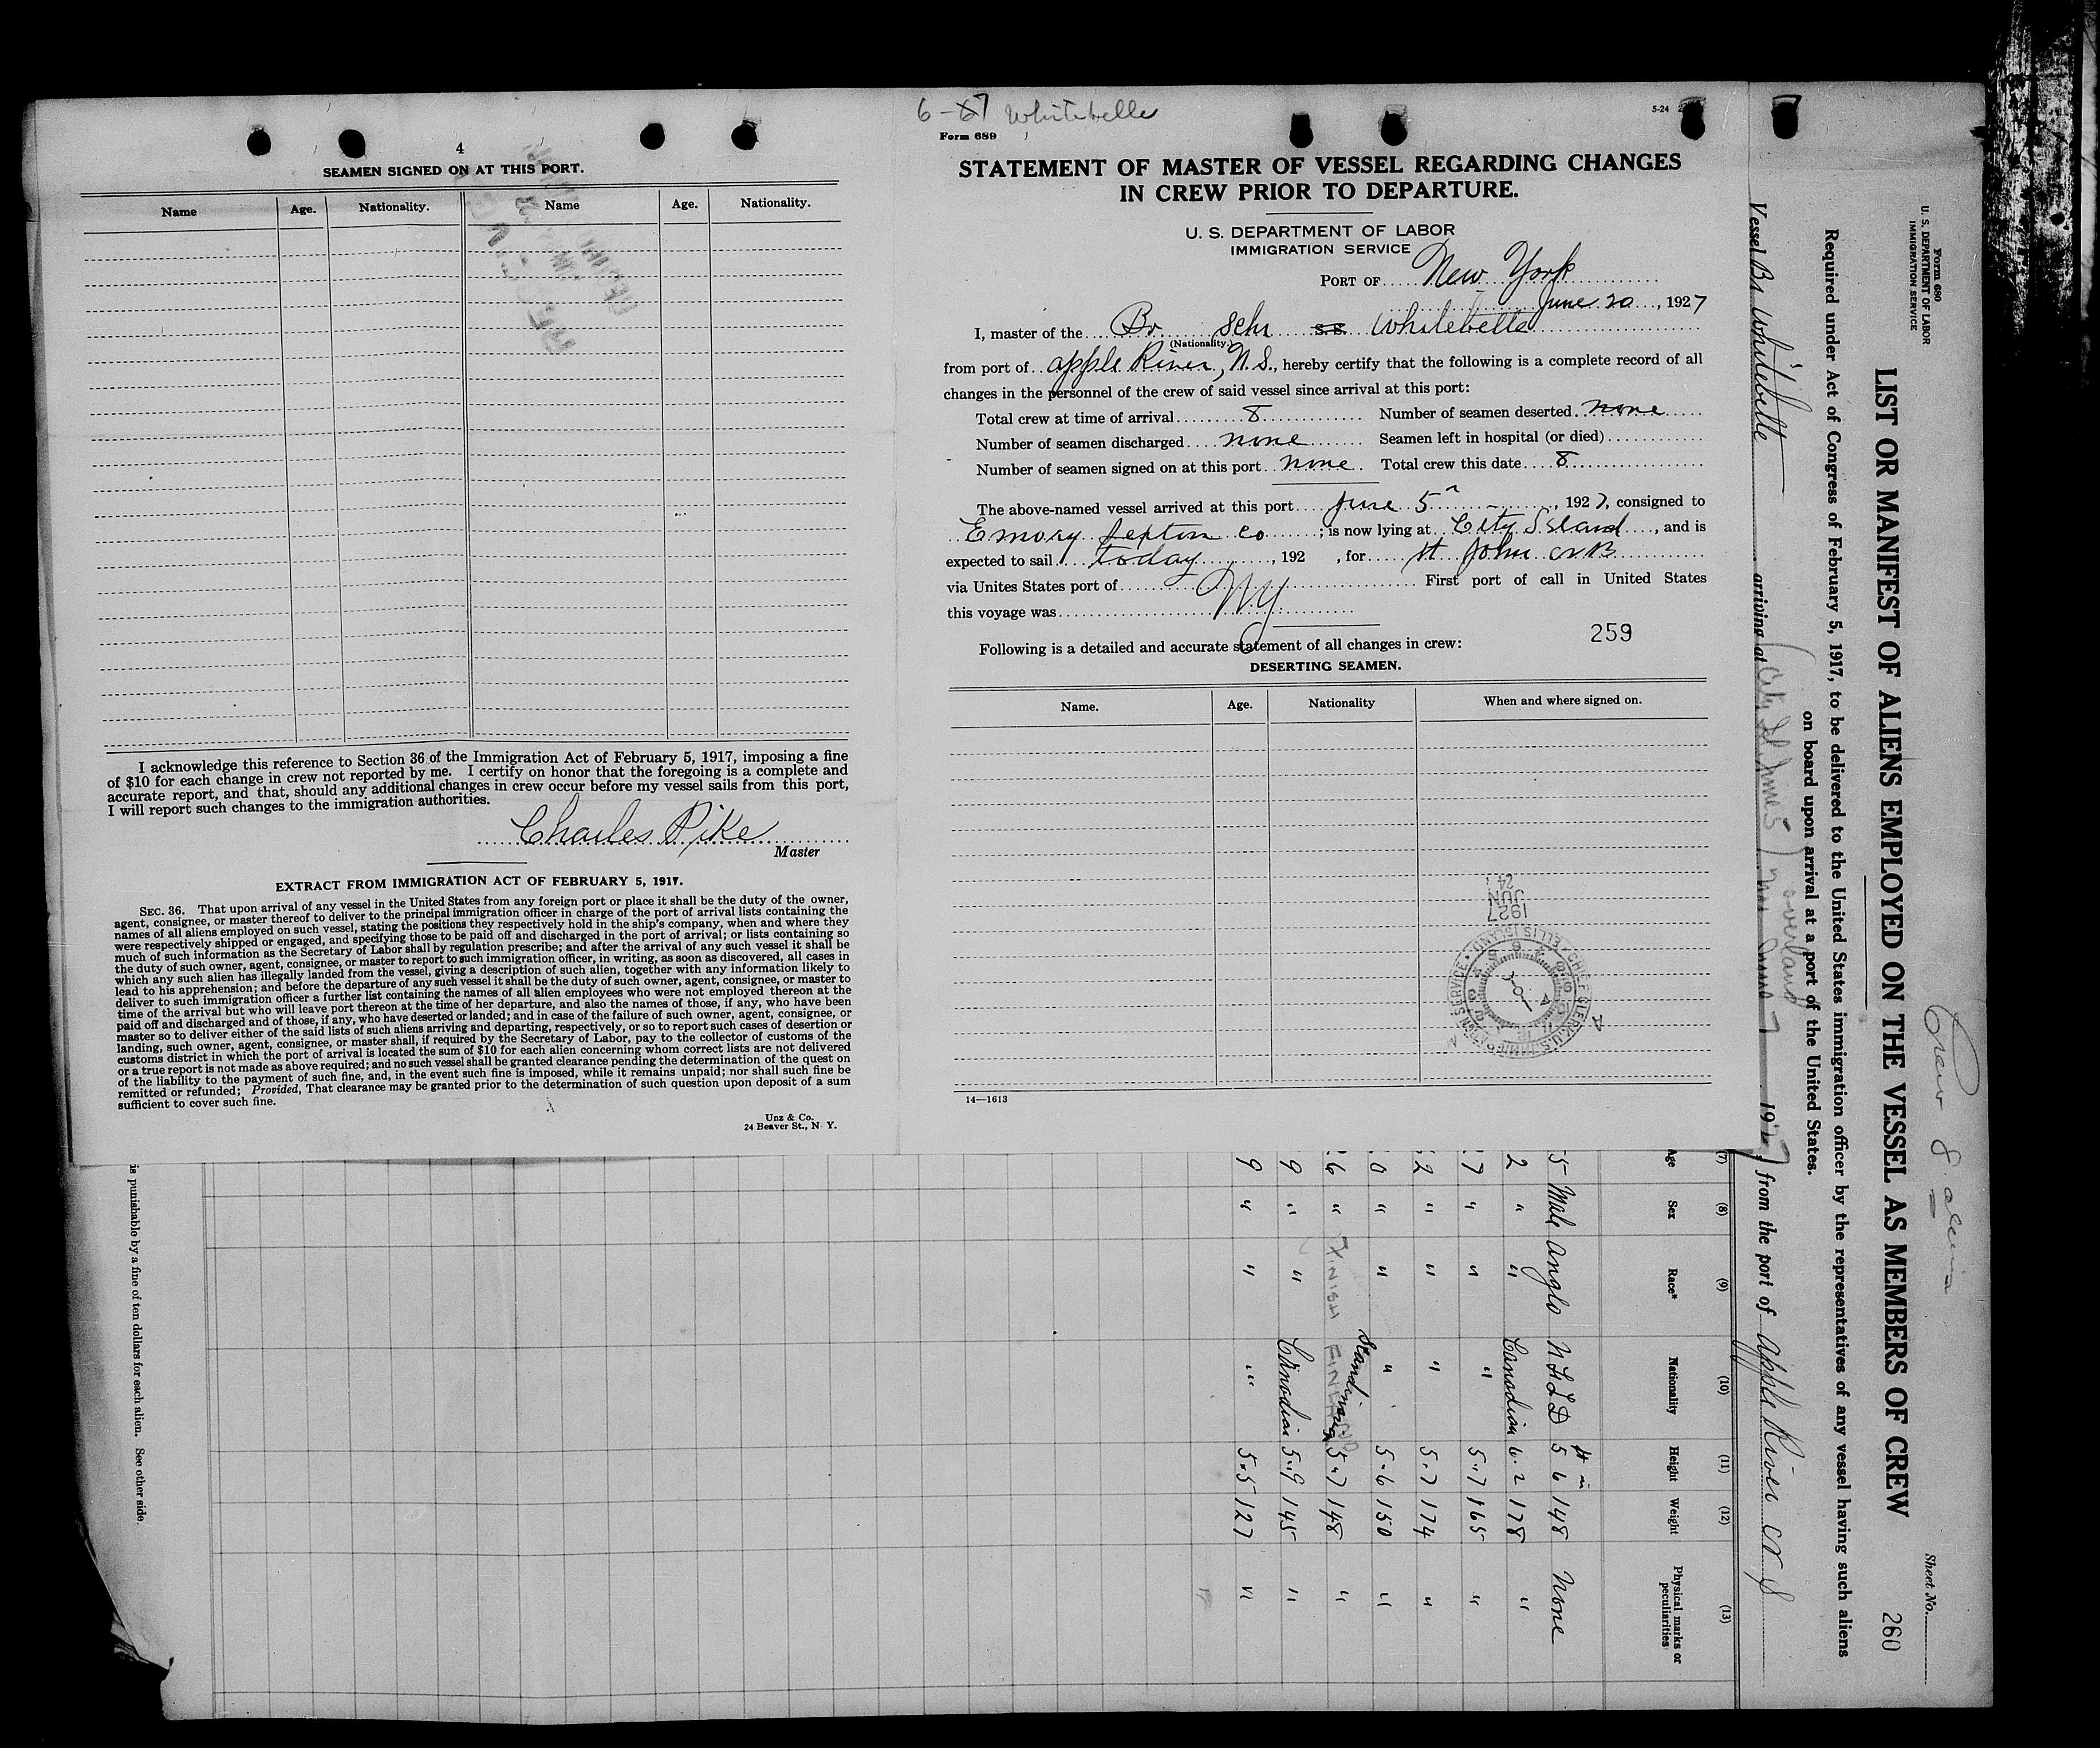 4
SEAMEN SIGNED ON AT THIS PORT.
Name Age. Nationality. Name Age. Nationality.
I acknowledge this reference to Section 36 of the Immigration Act of February 5, 1917, imposing a fine
of $10 for each change in crew not reported by me. I certify on honor that the foregoing is a complete and
accurate report, and that, should any additional changes in crew occur before my vessel sails from this port,
I will report such changes to the immigration authorities.
Charles Pike
Master
EXTRACT FROM IMMIGRATION ACT OF FEBRUARY 5, 1917.
SEC. 36. That upon arrival of any vessel in the United States from any foreign port or place it shall be the duty of the owner,
agent, consignee, or master thereof to deliver to the principal immigration officer in charge of the port of arrival lists containing the
names of all aliens employed on such vessel, stating the positions they respectively hold in the ship's company, when and where they
were respectively shipped or engaged, and specifying those to be paid off and discharged in the port of arrival; or lists containing so
much of such information as the Secretary of Labor shall by regulation prescribe; and after the arrival of any such vessel it shall be
the duty of such owner, agent, consignee, or master to report to such immigration officer, in writing, as soon as discovered, all cases in
which any such alien has illegally landed from the vessel, giving a description of such alien, together with any information likely to
lead to his apprehension; and before the departure of any such vessel it shall be the duty of such owner, agent, consignee, or master to
deliver to such immigration officer a further list containing the names of all alien employees who were not employed thereon at the
time of the arrival but who will leave port thereon at the time of her departure, and also the names of those, if any, who have been
paid off and discharged and of those, if any, who have deserted or landed; and in case of the failure of such owner, agent, consignee, or
master so to deliver either of the said lists of such aliens arriving and departing, respectively, or so to report such cases of desertion or
landing, such owner, agent, consignee, or master shall, if required by the Secretary of Labor, pay to the collector of customs of the
customs district in which the port of arrival is located the sum of $10 for each alien concerning whom correct lists are not delivered
or a true report is not made as above required; and no such vessel shall be granted clearance pending the determination of the quest on
of the liability to the payment of such fine, and, in the event such fine is imposed, while it remains unpaid; nor shall such fine be
remitted or refunded; Provided, That clearance may be granted prior to the determination of such question upon deposit of a sum
sufficient to cover such fine.
Unz & Co.
24 Beaver St., N. Y.
6-7 Whitebelle
5-24
Form 689
STATEMENT OF MASTER OF VESSEL REGARDING CHANGES
IN CREW PRIOR TO DEPARTURE.
U. S. DEPARTMENT OF LABOR
IMMIGRATION SERVICE
PORT OF New York
June 20, 1927
I, master of the Br Schr S.S. Whitebelle
(Nationality.)
from port of Apple River, N.S., hereby certify that the following is a complete record of all
changes in the personnel of the crew of said vessel since arrival at this port:
Total crew at time of arrival 8 Number of seamen deserted none
Number of seamen discharged none Seamen left in hospital (or died)
Number of seamen signed on at this port none. Total crew this date 8
The above-named vessel arrived at this port June 5, 1927, consigned to
Emory Sexton Co; is now lying at City Island, and is
expected to sail today, 192 , for St John NB
via Unites States port of NY First port of call in United States
this voyage was
259
Following is a detailed and accurate statement of all changes in crew:
DESERTING SEAMEN.
Name. Age. Nationality When and where signed on.
1927
JUN
24
CHIEF CLERK U.S. IMMIGRATION SERVICE ELLIS ISLAND
14—1613
Form 680
U. S. DEPARTMENT OF LABOR
IMMIGRATION SERVICE
Crew 8 alien
Sheet No.
LIST OR MANIFEST OF ALIENS EMPLOYED ON THE VESSEL AS MEMBERS OF CREW
260
Required under Act of Congress of February 5, 1917, to be delivered to the United States immigration officer by the representatives of any vessel having such aliens
on board upon arrival at a port of the United States.
Vessel Br Whitebelle arriving at (City Isl June 5) overland June 7 1927, from the port of Apple River N S
(7) (8) (9) (10) (11) (12) (13)
Age Sex Race* Nationality Height Weight Physical marks or peculiarities
5 Male Anglo NFLD 5 6 148 none
2 " " Canadian 6.2 178 "
7 " " " 5.7 165 "
2 " " " 5.7 174 "
0 " " " 5.6 150 "
6 " FINISH FINLAND 5.7 148 "
9 " " Canadian 5.9 145 "
9 " " " 5.5 127 "
is punishable by a fine of ten dollars for each alien. See other side.